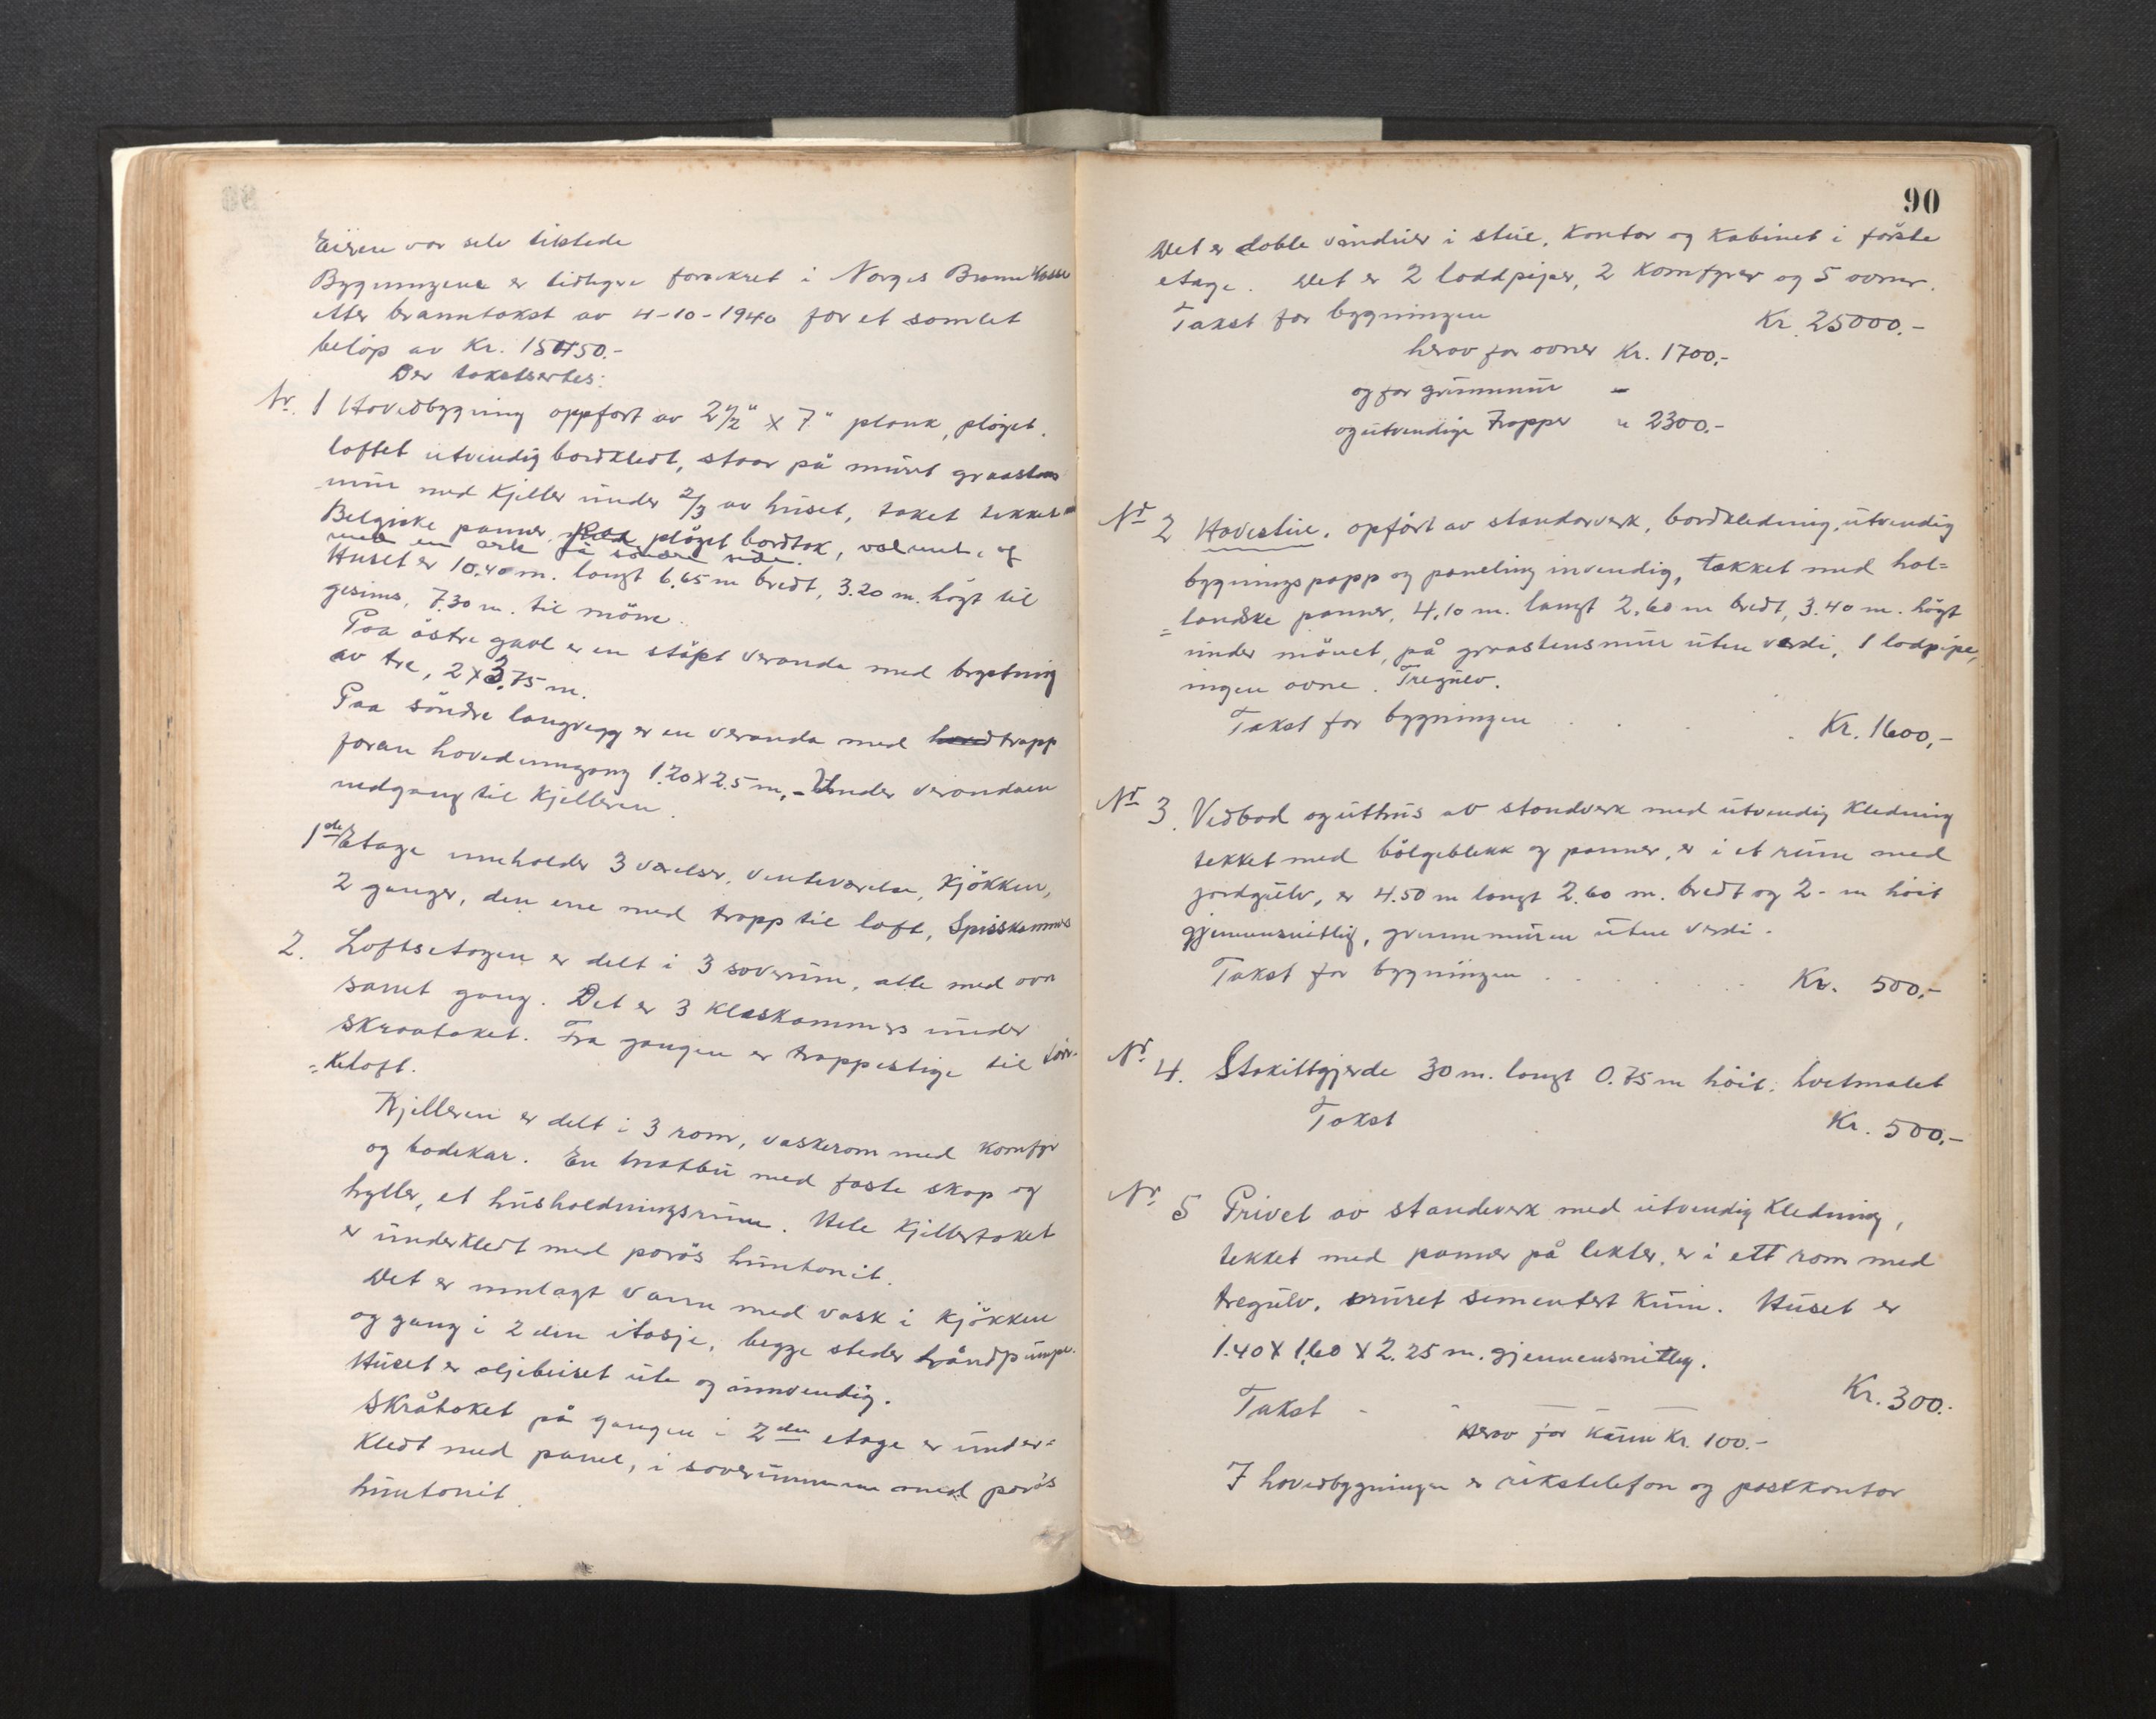 Eieren var selv tilstede
Bygningene er tidligere forsikret i Norges Brannkasse
etter branntakst av 4-10-1940 for et samlet
beløp av Kr. 15450.-
Der takstertes:
Nr. 1 Hovedbygning oppført av 2½" x 7" plank, pløiet.
loftet utvendig bordkledt, staar på muret graastens
mur med Kjeller under 2/3 av huset, taket tekket m
Belgiske panner, pløyet bordtak, valmet, og
med en ark på søndre side.
Huset er 10.40 m. langt 6.65 m bredt, 3.20 m. høgt til
gesims, 7.30 m. til møne.
Paa østre gavl er en støpt veranda med brystning
av tre, 2 x 3.75 m.
Paa søndre langvegg er en veranda med trapp
foran hovedinngang 1.20 x 2.5 m, - Under verandaen
nedgang til Kjelleren.
1ste Etage inneholder 3 værelser, venteværelse, Kjøkken,
2 ganger, den ene med trapp til loft, Spisskammers
2. Loftsetagen er delt i 3 soverum, alle med ovn
samt gang. Det er 3 kleskammers under
skraataket. Fra gangen er trappestige til tør-
=keloft.
Kjelleren er delt i 3 rom, vaskerom med Komfyr
og badekar. En matbu med faste skap og
hyller, et husholdningsrum. Hele Kjellertaket
er underkledt med porøs huntonit.
Det er innlagt vann med vask i Kjøkken
og gang i 2den etasje, begge steder håndpumpe.
Huset er oljebeiset ute og innvendig.
Skråtaket på gangen i 2den etage er under=
kledt med panel, i soverummene med porøs
huntonit.
90
Det er doble vinduer i stue, Kontor og Kabinet i første
etage. Det er 2 loddpiper, 2 Komfyrer og 5 ovner.
Takst for bygningen Kr. 25000.-
herav for ovner Kr. 1700,-
og for grunnmur -
og utvendige trapper " 2300.-
Nr. 2 Havestue. opført av standarverk, bordkledning, utvendig
bygningspapp og paneling invendig, tekket med hol=
=landske panner, 4.10 m. langt 2.60 m bredt, 3.40 m. høgt
under mønet, på graastensmur uten verdi, 1 lodpipe,
ingen ovne. Tregulv.
Takst for bygningen Kr. 1600,-
Nr. 3. Vedbod og uthus av standverk med utvendig Kledning
tekket med bølgeblekk og panner, er i et rum med
jordgulv, er 4.50 m langt 2.60 m. bredt og 2- m høit
gjennensnitlig, grunnmuren uten verdi.
Takst for bygningen Kr. 500,-
Nr. 4. Stakittgjerde 30 m. langt 0.75 m høit. hvitmalet
Takst Kr. 500,-
Nr. 5 Privet av standeverk med utvendig Kledning,
tekket med panner på lekter, er i ett rom med
tregulv, muret sementert Kum. Huset er
1.40 x 1.60 x 2.25 m. gjennensnitlig.
Takst - Kr. 300.-
Herav for Kum Kr. 100.-
I hovedbygningen er rikstelefon og postkontor